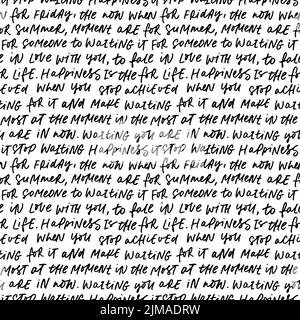 for Friday. the now when for Friday. the now when
or Summer, moment are for Summer, moment are
for someone to waiting it for someone to waiting
e in Love with you, to fall in Love with you, to
r Life. Happiness is the for Life. Happiness is the
eved when you stop achieved when you stop
ting for it and make waiting for it and make wai
most at the moment in the most at the moment in
u are in now. Waiting you are in now. Waiting you
it stop waiting Happiness it stop waiting Happiness
for Friday. the now when for Friday. the now when
or Summer, moment are for Summer, moment are
for someone to waiting it for someone to waiting
e in Love with you, to fall in Love with you, to
r Life. Happiness is the for Life. Happiness is the
r achieved when you stop achieved when you
ting for it and make waiting for it and make
most at the moment in the most at the moment in
u are in now. Waiting you are in now. Waiting
it stop waiting Happiness it stop waiting Happiness
alamy
Image ID: 2JMADRW
www.alamy.com